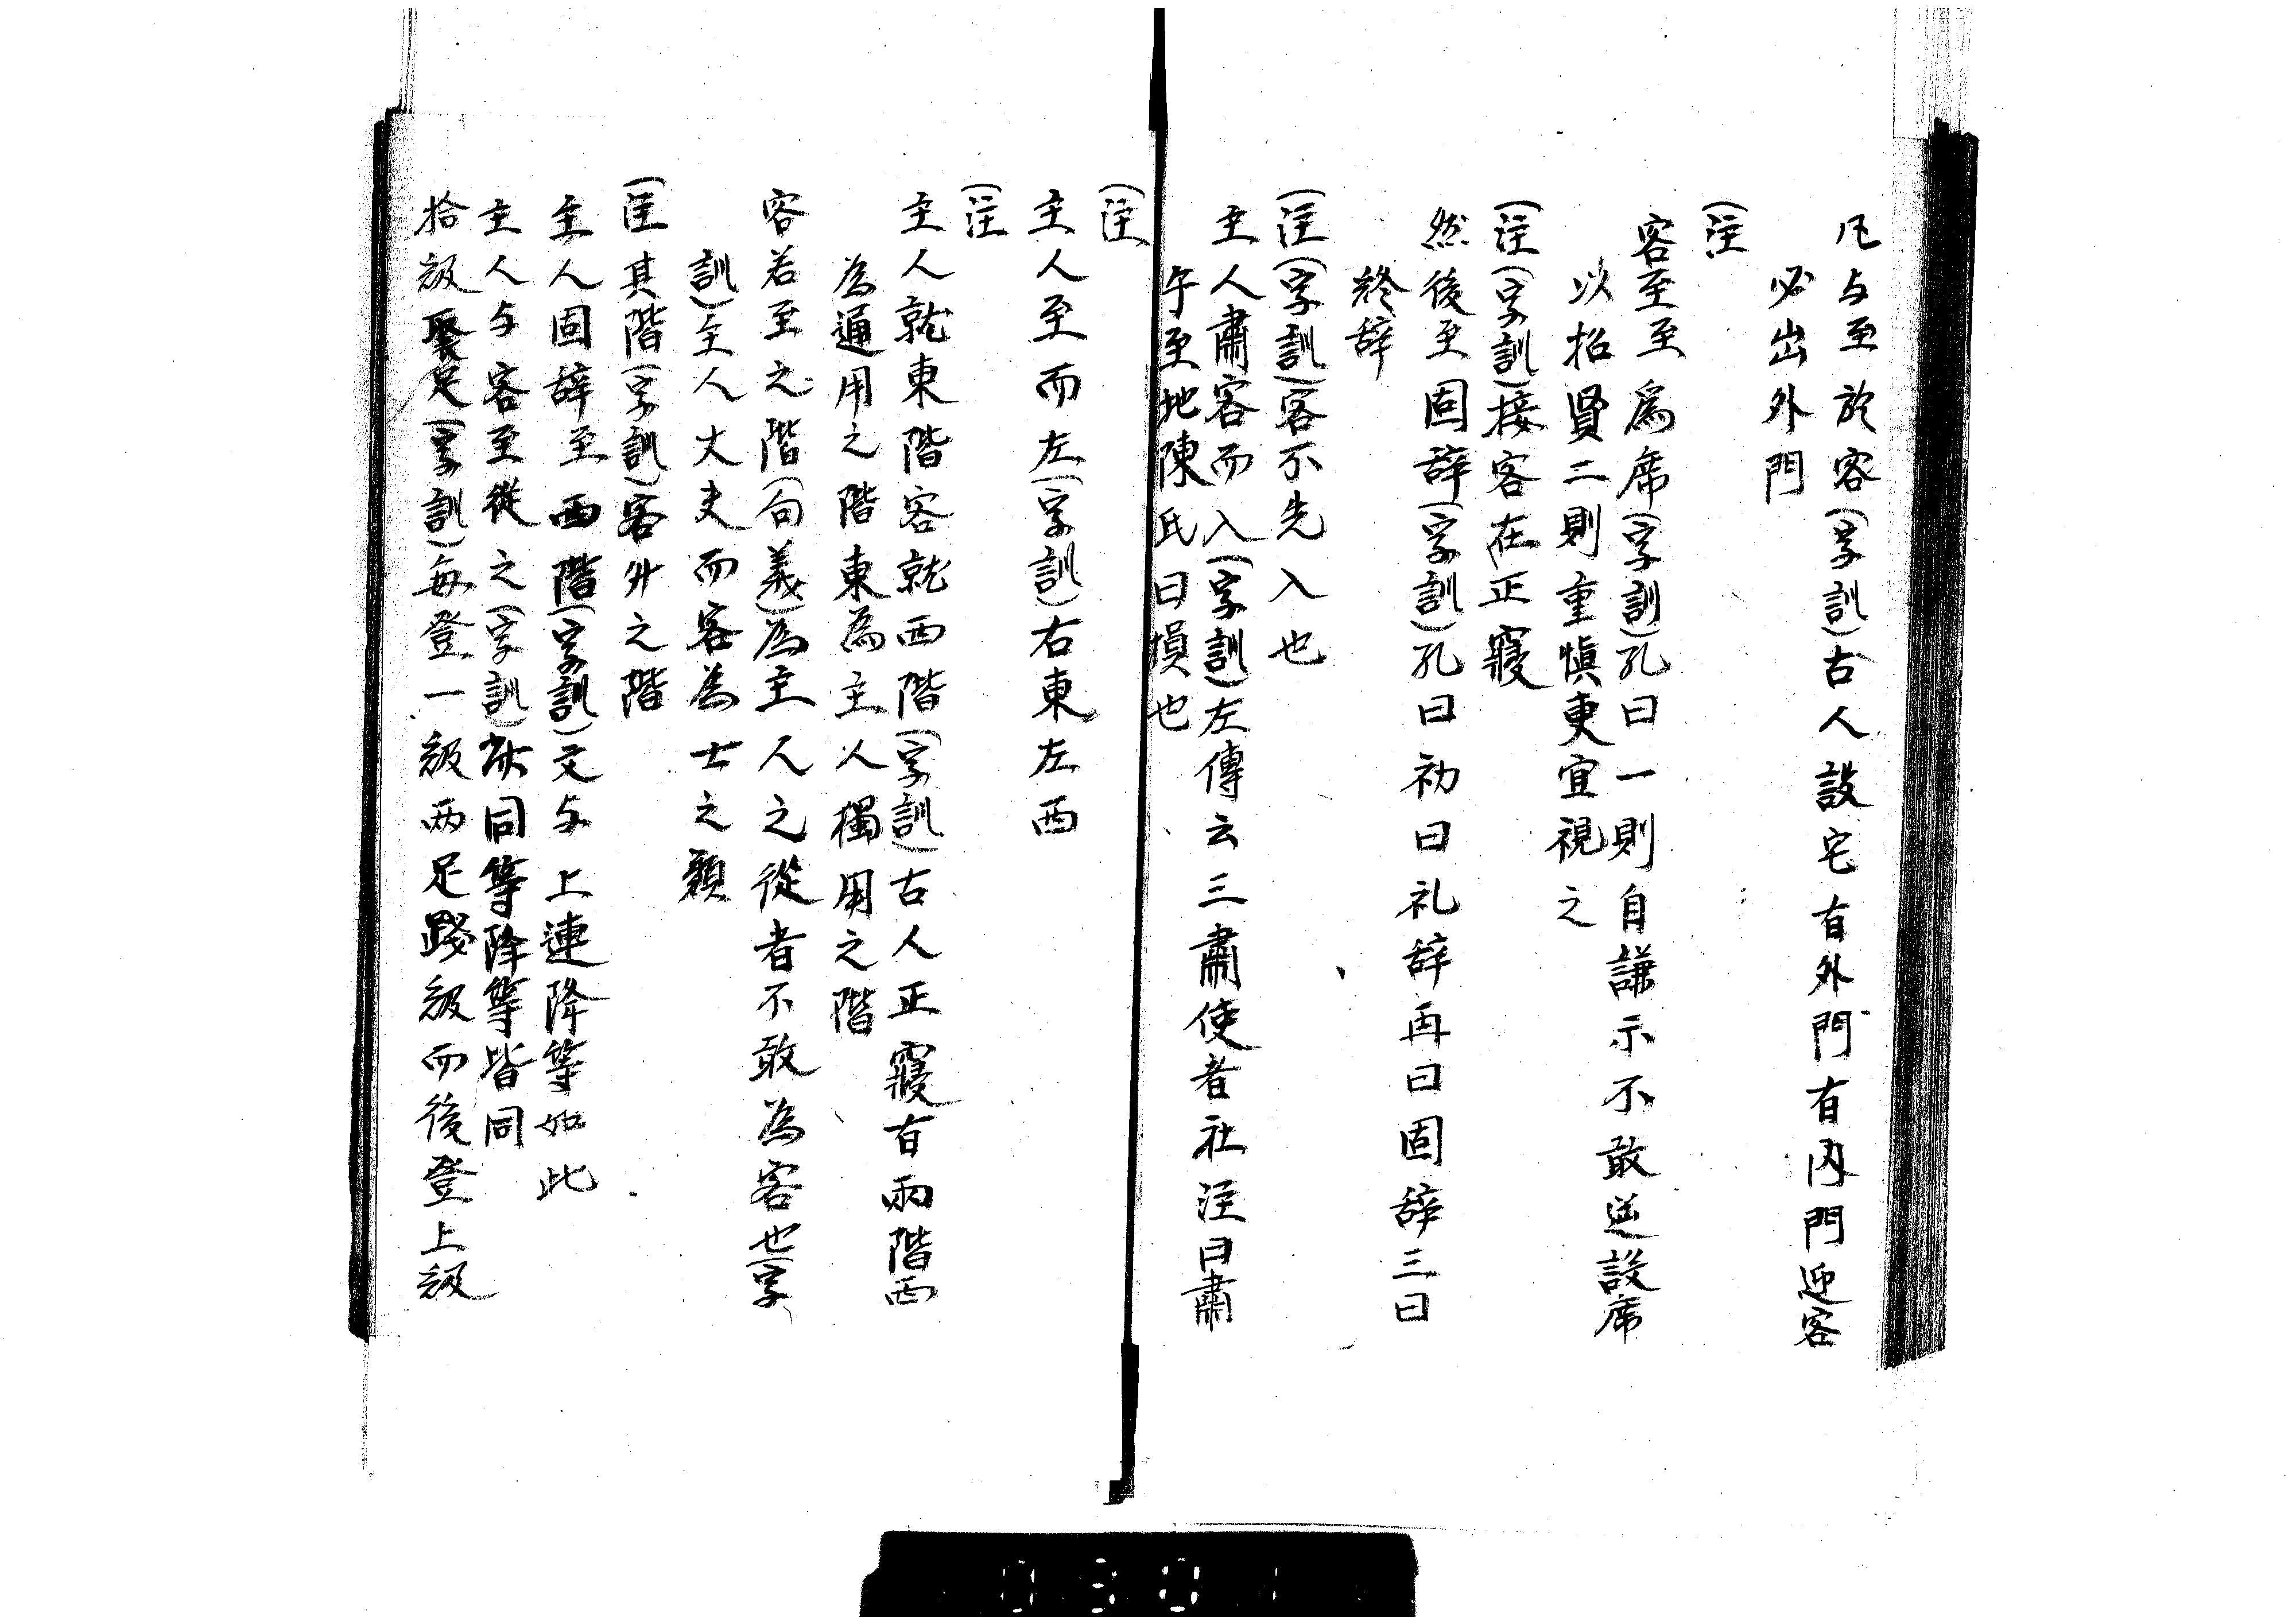 凡与至於客(字訓)古人設宅有外門有内門迎客
必出外門
(注
客至至爲席(字訓)孔曰一則自謙示不敢逆設席
以招賢二則重慎更宜視之
(注(字訓)接客在正寢
然後至固辞(字訓)孔曰初曰礼辞再曰固辞三曰
終辞
(注(字訓)客不先入也
主人肅客而入(字訓)左傳云三肅使者社注曰肅
午至地陳氏曰損也
(注
主人至而左(字訓)右東左西
(注
主人就東階客就西階(字訓)古人正寢有兩階西
為通用之階東為主人獨用之階
客若至之階(句義)為主人之從者不敢為客也(字
訓)主人大夫而客為士之類
(注其階(字訓)客升之階
主人固辞至西階(字訓)文与上連降等如此
主人与客至從之(字訓)同等降等皆同
拾級聚足(字訓)每登一級两足踐級而後登上級
0301